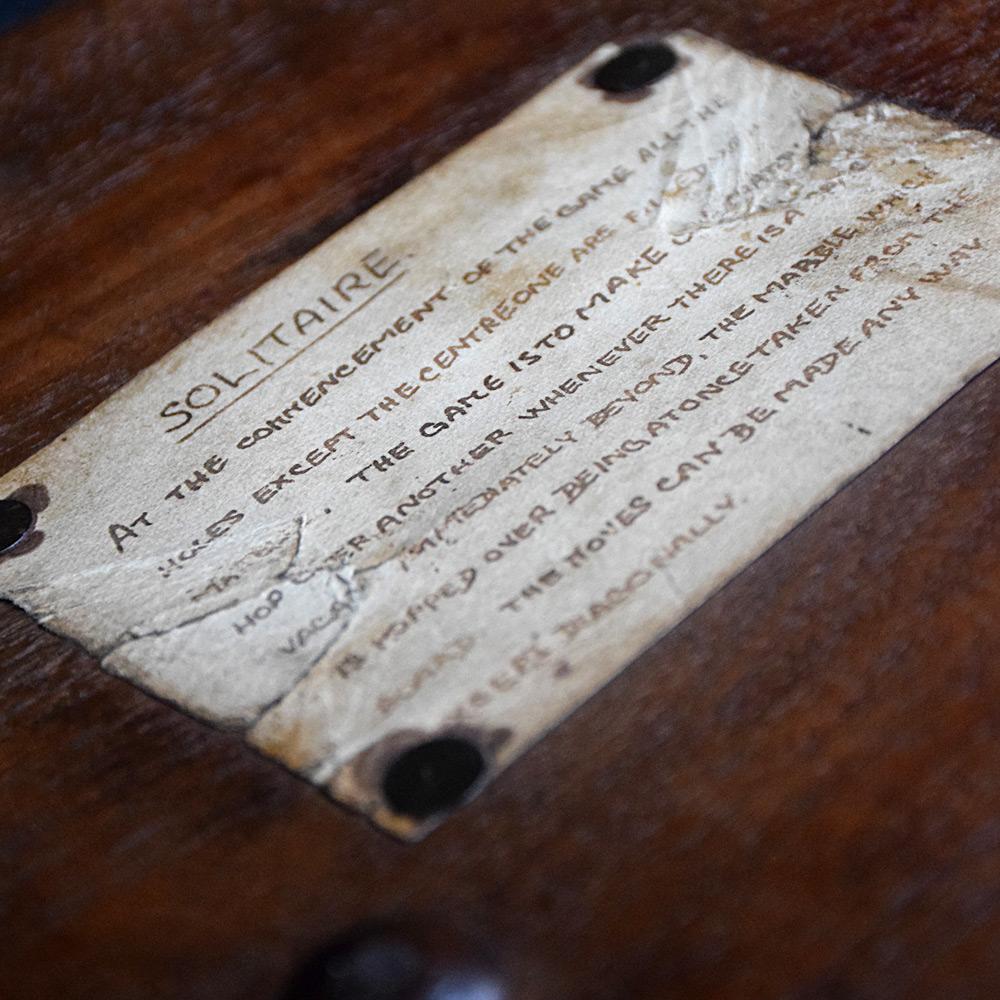 SOLITAIRE.
AT THE COMMENCEMENT OF THE GAME ALL THE
HOLES EXCEPT THE CENTRE ONE ARE FILLED
THE GAME IS TO MAKE
HOP OVER ANOTHER WHENEVER THERE IS A
VACANT IMMEDIATELY BEYOND, THE MARBLE WHICH
IS HOPPED OVER BEING AT ONCE TAKEN FROM THE
BOARD THE MOVES CAN BE MADE ANY WAY
EXCEPT DIAGONALLY.